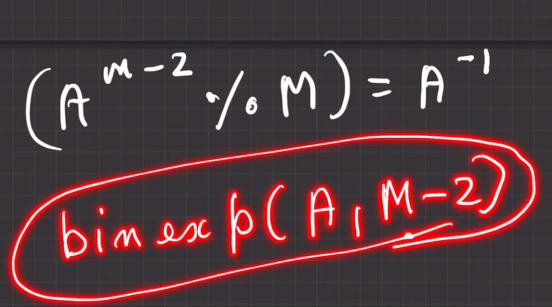 (A^{M-2} % M) = A^{-1}
binexp(A, M-2)